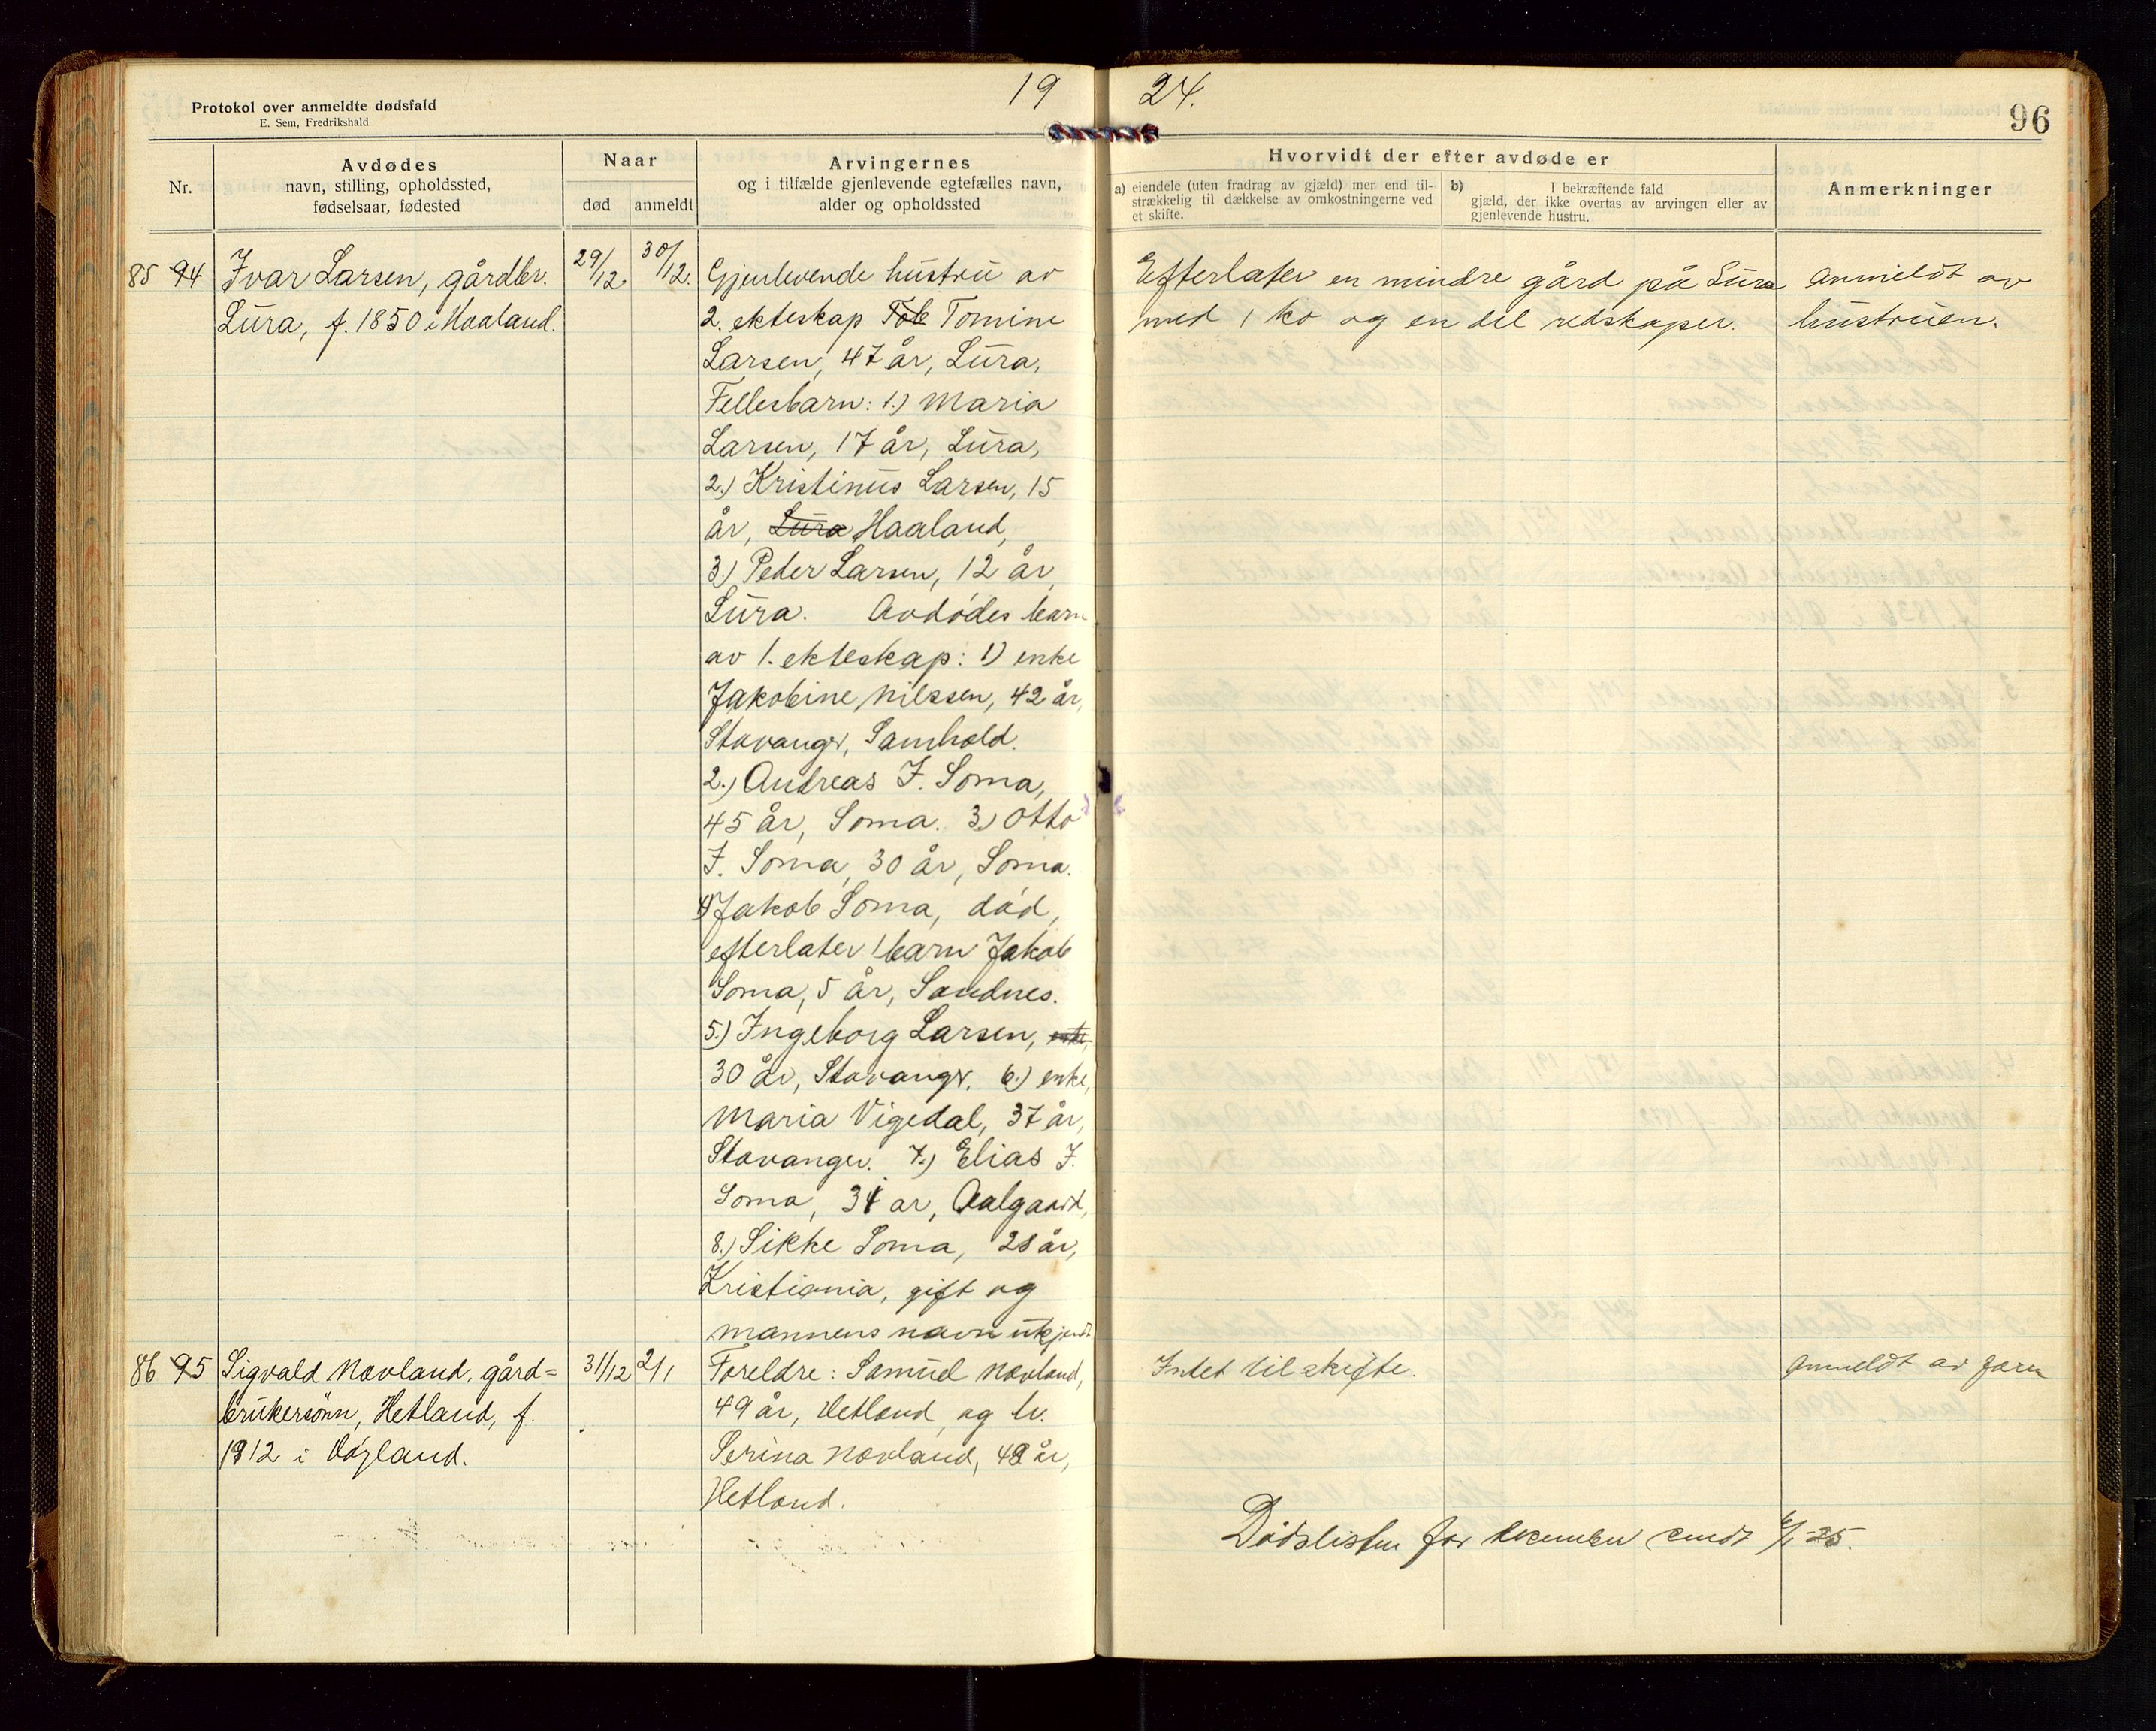 Protokol over anmeldte dødsfald
E. Sem, Fredrikshald
19 24.
96
Nr.
Avdødes
navn, stilling, opholdssted,
fødselsaar, fødested
Naar
død
anmeldt
Arvingernes
og i tilfælde gjenlevende egtefælles navn,
alder og opholdssted
Hvorvidt der efter avdøde er
a) eiendele (uten fradrag av gjæld) mer end til-
strækkelig til dækkelse av omkostningerne ved
et skifte.
b) I bekræftende fald
gjæld, der ikke overtas av arvingen eller av
gjenlevende hustru.
Anmerkninger
85 94
Ivar Larsen, gårdbr.
Lura, f. 1850 i Haaland.
29/12.
30/12.
Gjenlevende hustru av
2. ekteskap Tob Tomine
Larsen, 47 år, Lura,
Fellesbarn: 1.) Maria
Larsen, 17 år, Lura,
2.) Kristinus Larsen, 15
år, Lura Haaland,
3.) Peder Larsen, 12 år,
Lura. Avdødes barn
av 1. ekteskap: 1) enke
Jakobine Nilssen, 42 år,
Stavanger, Samhold.
2.) Andreas I. Soma,
45 år, Soma. 3.) Otto
I. Soma, 30 år, Soma.
4) Jakob Soma, død,
efterlater 1 barn Jakob
Soma, 5 år, Sandnes.
5.) Ingeborg Larsen, enke,
30 år, Stavanger. 6.) enke,
Maria Vigedal, 37 år,
Stavanger. 7.) Elias I.
Soma, 34 år, Aalgaard,
8.) Sikke Soma, 28 år,
Kristiania, gift og
mannens navn ukjendt
Efterlater en mindre gård på Lura
med 1 ko og en del redskaper.
Anmeldt av
hustruen.
86 95
Sigvald Novland, gård=
brukersønn, Hetland, f.
1912 i Øgland.
31/12
2/1
Foreldre: Samuel Novland,
49 år, Hetland, og h.
Serina Novland, 48 år,
Hetland.
Intet til skifte.
Anmeldt av faren
Dødslisten for december sendt 6/1-25.